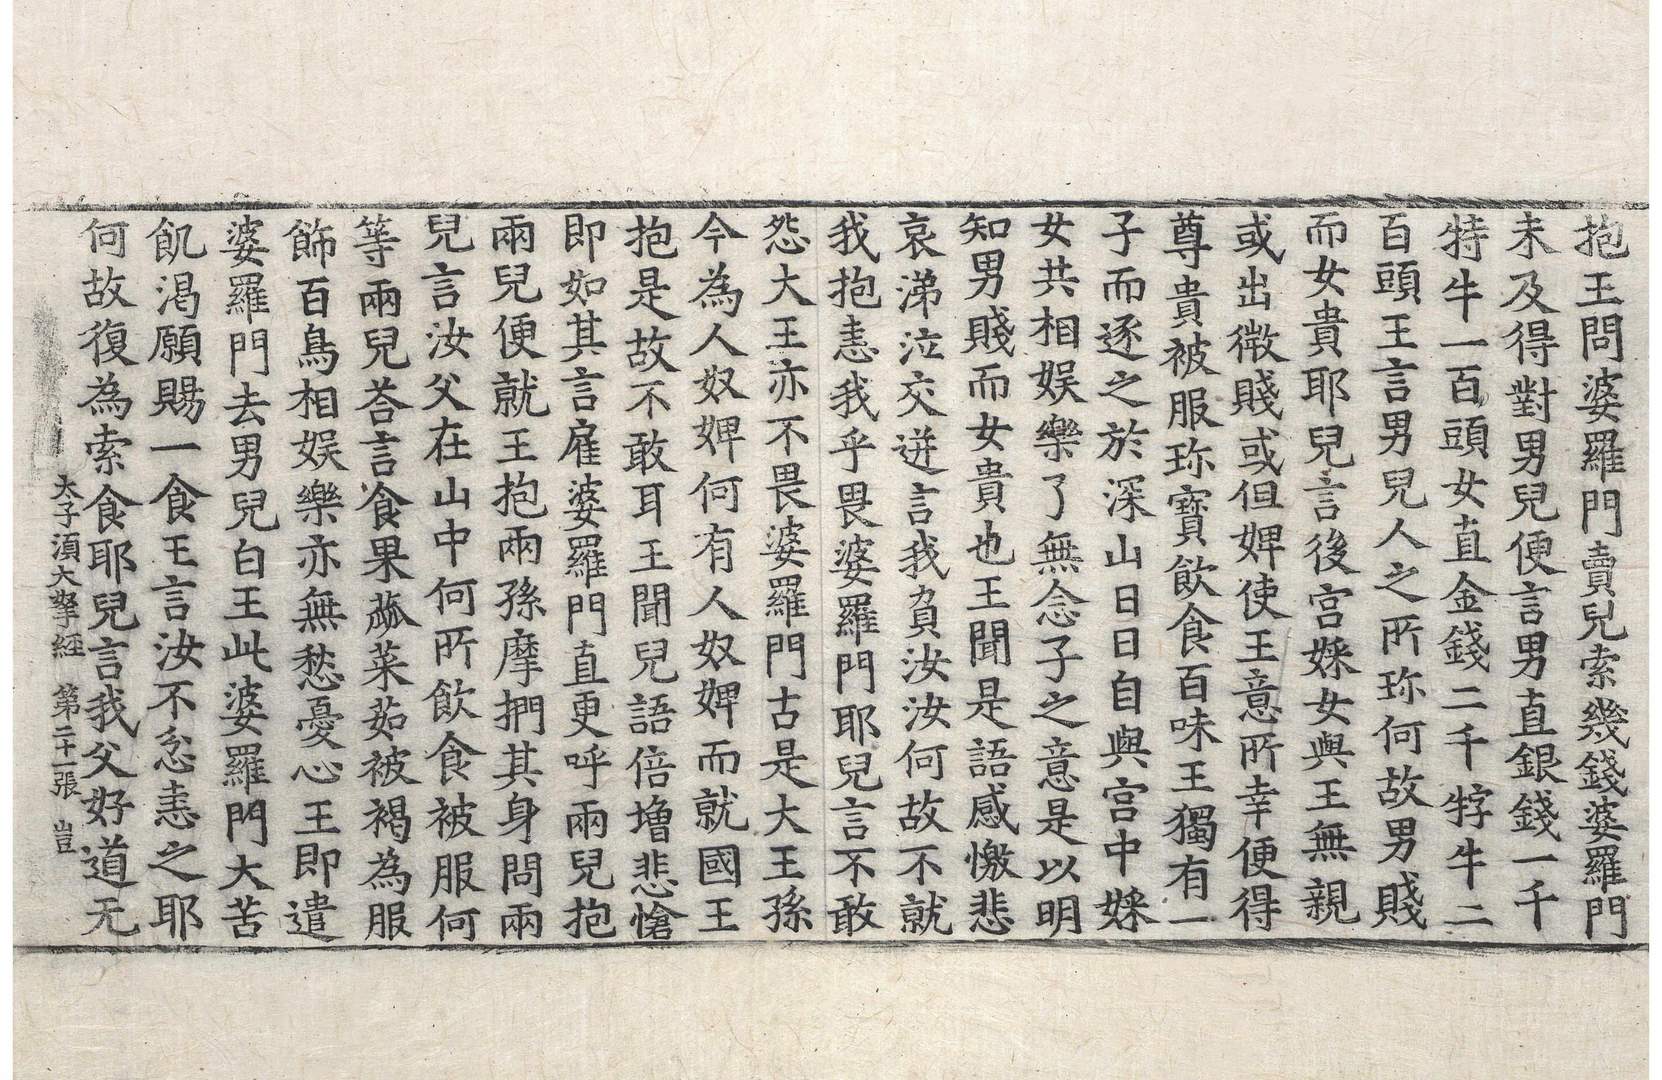 抱王問婆羅門賣兒索幾錢婆羅門
未及得對男兒便言男直銀錢一千
特牛一百頭女直金錢二千牸牛二
百頭王言男兒人之所珎何故男賤
而女貴耶兒言後宮婇女與王無親
或出微賤或但婢使王意所幸便得
尊貴被服珎寶飲食百味王獨有一
子而逐之於深山日日自與宮中婇
女共相娱樂了無念子之意是以明
知男賤而女貴也王聞是語感懒悲
哀涕泣交迸言我負汝汝何故不就
我抱恚我乎畏婆羅門耶兒言不敢
怨大王亦不畏婆羅門古是大王孫
今為人奴婢何有人奴婢而就國王
抱是故不敢耳王聞兒語倍增悲愴
即如其言雇婆羅門直更呼兩兒抱
兩兒便就王抱兩孫摩捫其身問兩
兒言汝父在山中何所飲食被服何
等兩兒荅言食果蓏菜茹被褐為服
飾百鳥相娱樂亦無愁憂心王即遣
婆羅門去男兒白王此婆羅門大苦
飢渴願賜一食王言汝不忿恚之耶
何故復為索食耶兒言我父好道无
太子湏大拏經　第二十一張　豈